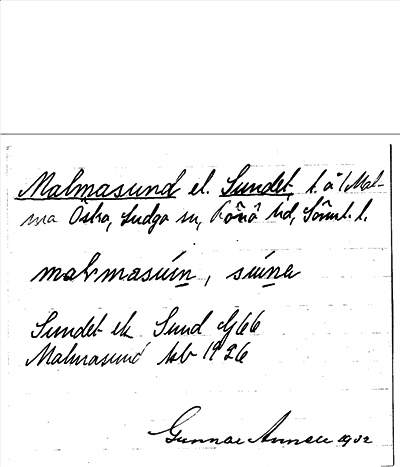 Malmasund el. Sundet, t. å l Mal-
ma Östra, Ludgo sn, Rönö hd, Söml. l.
malmasún, súna
Sundet ek Sund Gj 66
Malmasund kb 1926
Gunnar 1932